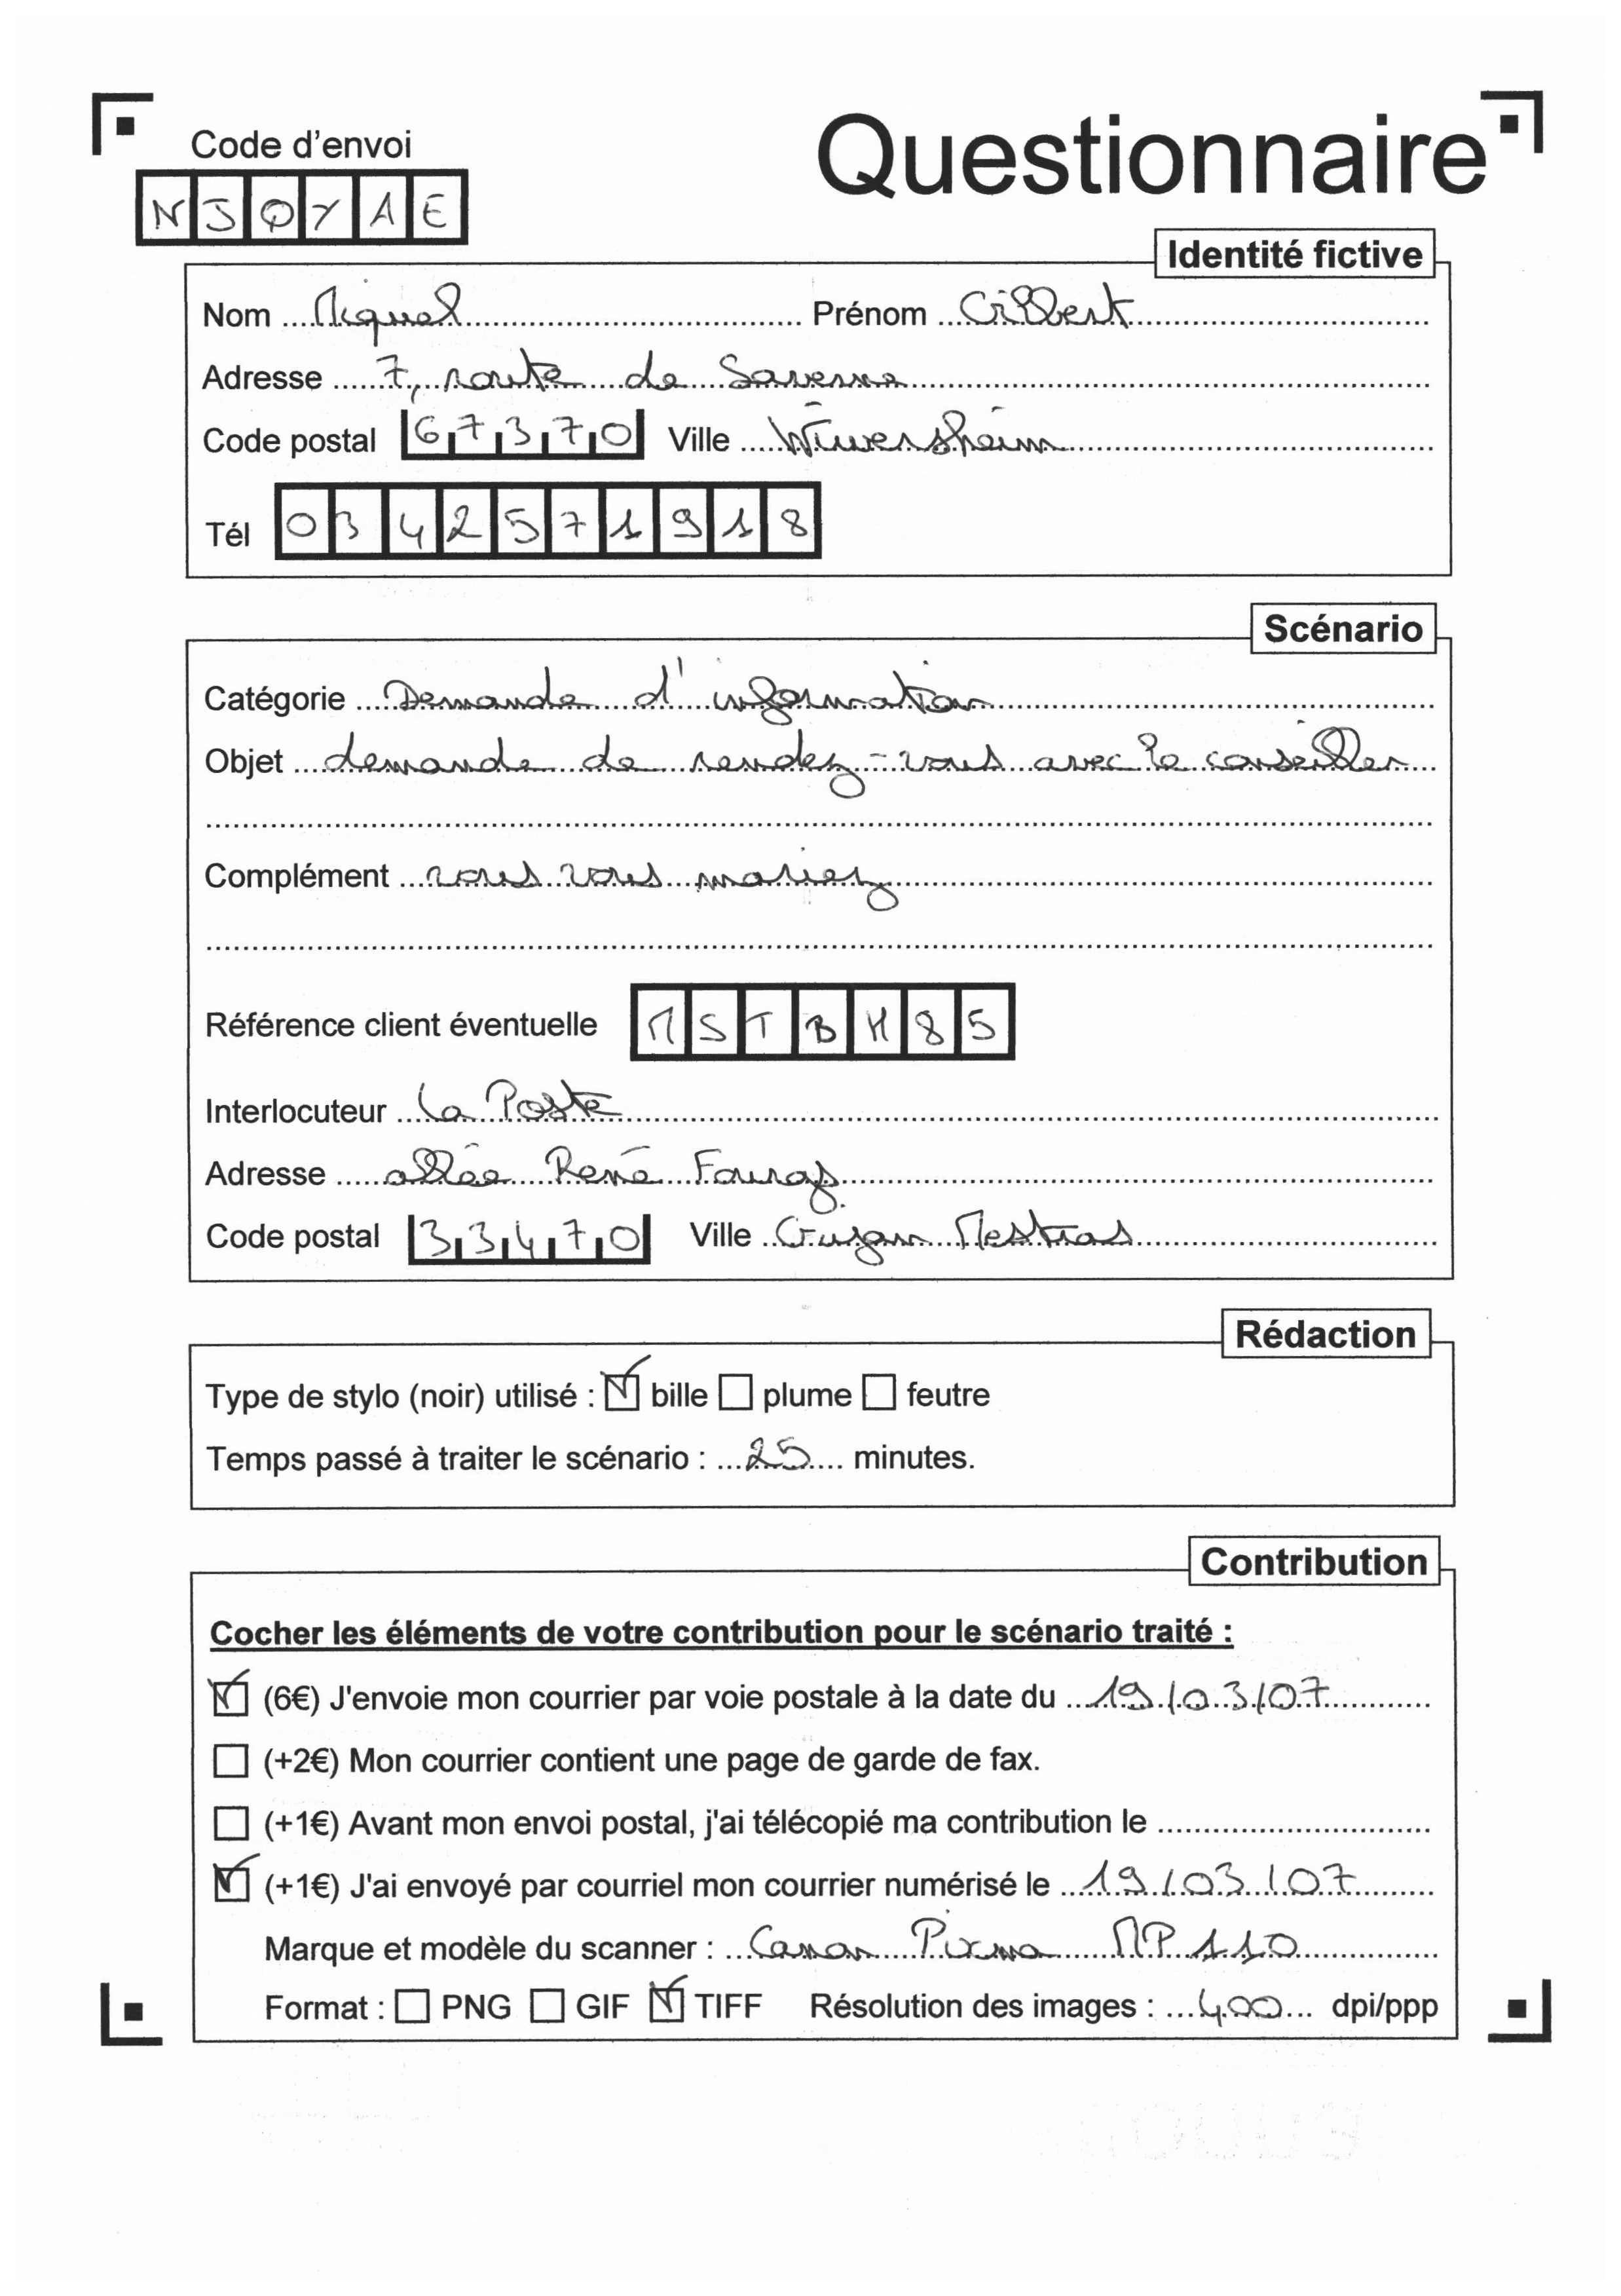 Code d'envoi
Questionnaire
NJQYAE
Identité fictive
Nom Miquel Prénom Gilbert
Adresse 7, route de Saverne
Code postal 67370 Ville Wiwersheim
Tél 0342571918
Scénario
Catégorie Demande d'information
Objet demande de rendez-vous avec le conseiller
Complément vous vous mariez
Référence client éventuelle MSTBH85
Interlocuteur La Poste
Adresse allée René
Code postal 33470 Ville Gujan Mestras
Rédaction
Type de stylo (noir) utilisé : bille plume feutre
Temps passé à traiter le scénario : 25 minutes.
Contribution
Cocher les éléments de votre contribution pour le scénario traité :
(6€) J'envoie mon courrier par voie postale à la date du 19/03/07
(+2€) Mon courrier contient une page de garde de fax.
(+1€) Avant mon envoi postal, j'ai télécopié ma contribution le
(+1€) J'ai envoyé par courriel mon courrier numérisé le 19/03/07
Marque et modèle du scanner : Canon Pixma MP 110
Format : PNG GIF TIFF Résolution des images : 400 dpi/ppp